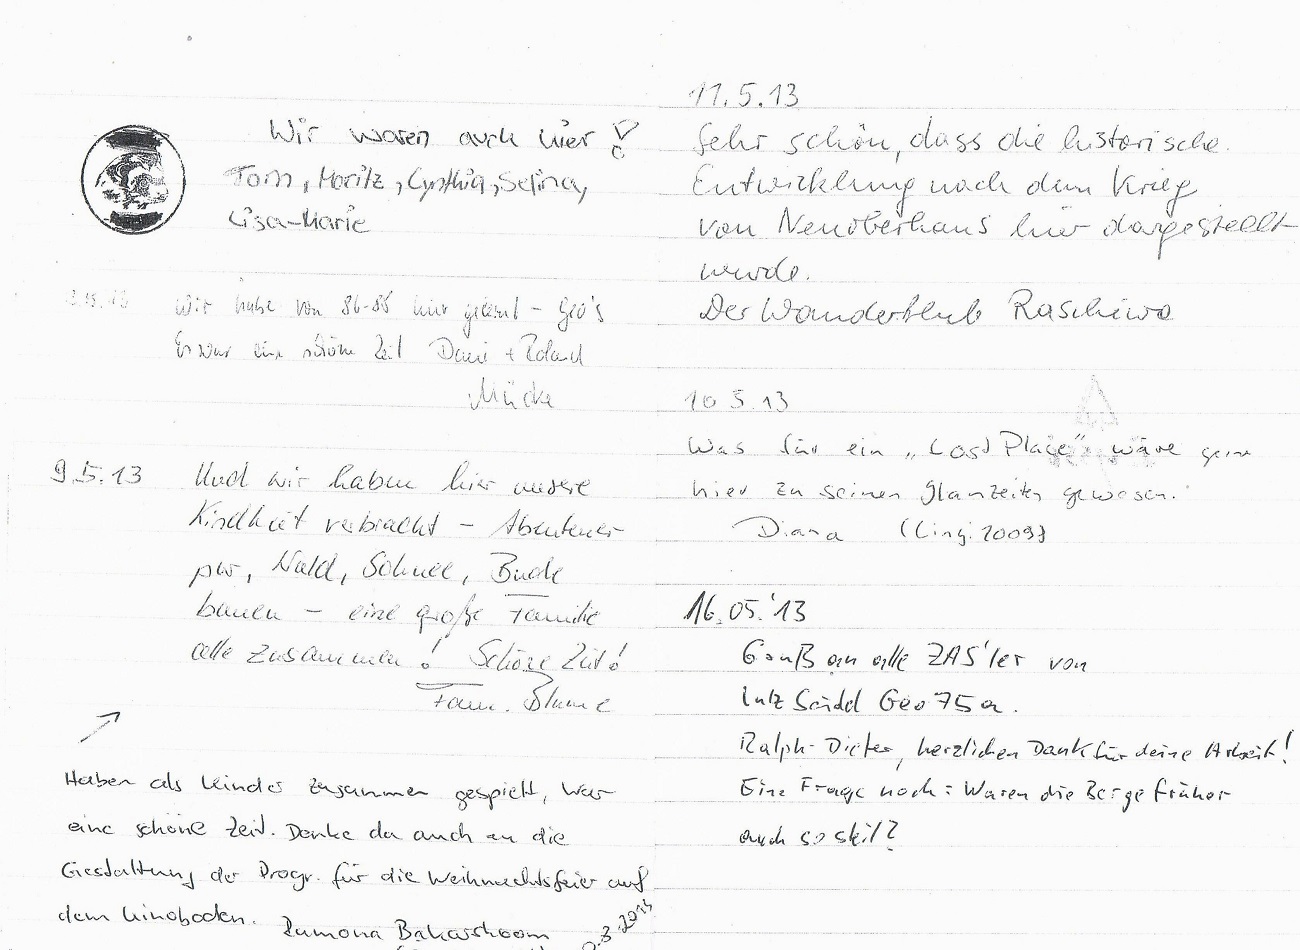 Wir waren auch hier!
Tom, Moritz, Cynthia, Selina,
Lisa-Marie
Wir habe von 86-88 hier gelernt - Geo's
Es war eine schöne Zeit Dani + Roland
Mücke
9.5.13
Und wir haben hier unsere
Kindheit verbracht - Abenteuer
pur, Wald, Schnee, Bude
bauen - eine große Familie
alle zusammen! Schöne Zeit!
Fam. Blume
Haben als Kinder zusammen gespielt, war
eine schöne Zeit. Denke da auch an die
Gestaltung der Progr. für die Weihnachtsfeier auf
dem Kinoboden. Ramona
11.5.13
Sehr schön, dass die historische
Entwicklung nach dem Krieg
von Neuoberhaus hier dargestellt
wurde.
Der Wanderklub Raschiwa
10 5.13
Was für ein „Lost Place" wäre gern
hier zu seinen Glanzzeiten gewesen.
Diana
16.05.'13
Gruß an alle ZAS'ler von
Lutz Seidel Geo 75a.
Ralph-Dieter, herzlichen Dank für deine Arbeit!
Eine Frage noch: Waren die Berge früher
auch so steil?